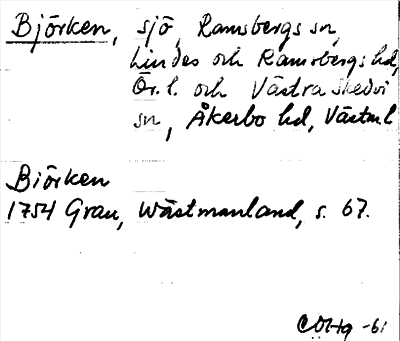 Björken, sjö, Ramsbergs sn,
Lindes och Ramsbergs hd,
Ör. l. och Västra Skedvi
sn, Åkerbo hd, Västml
Björken
1754 Grau, Wästmanland, s. 67.
-61